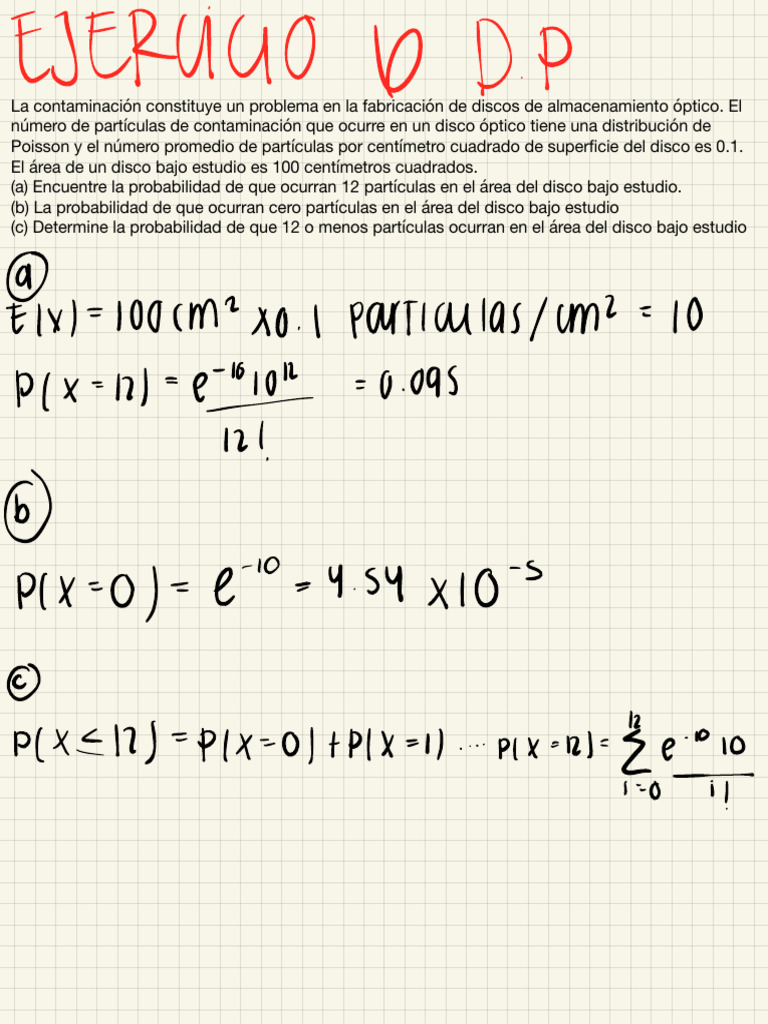 EJERCICIO 6 D.P
La contaminación constituye un problema en la fabricación de discos de almacenamiento óptico. El
número de partículas de contaminación que ocurre en un disco óptico tiene una distribución de
Poisson y el número promedio de partículas por centímetro cuadrado de superficie del disco es 0.1.
El área de un disco bajo estudio es 100 centímetros cuadrados.
(a) Encuentre la probabilidad de que ocurran 12 partículas en el área del disco bajo estudio.
(b) La probabilidad de que ocurran cero partículas en el área del disco bajo estudio
(c) Determine la probabilidad de que 12 o menos partículas ocurran en el área del disco bajo estudio
a
E(x) = 100 cm² x0.1 particulas/cm² = 10
P(X = 12) = e⁻¹⁰ 10¹² / 12! = 0.095
b
P(X = 0) = e⁻¹⁰ = 4.54 x10⁻⁵
c
P(X ≤ 12) = P(X = 0) + P(X = 1) .... P(X = 12) = Σ i=0 12 e⁻¹⁰ 10 / i!